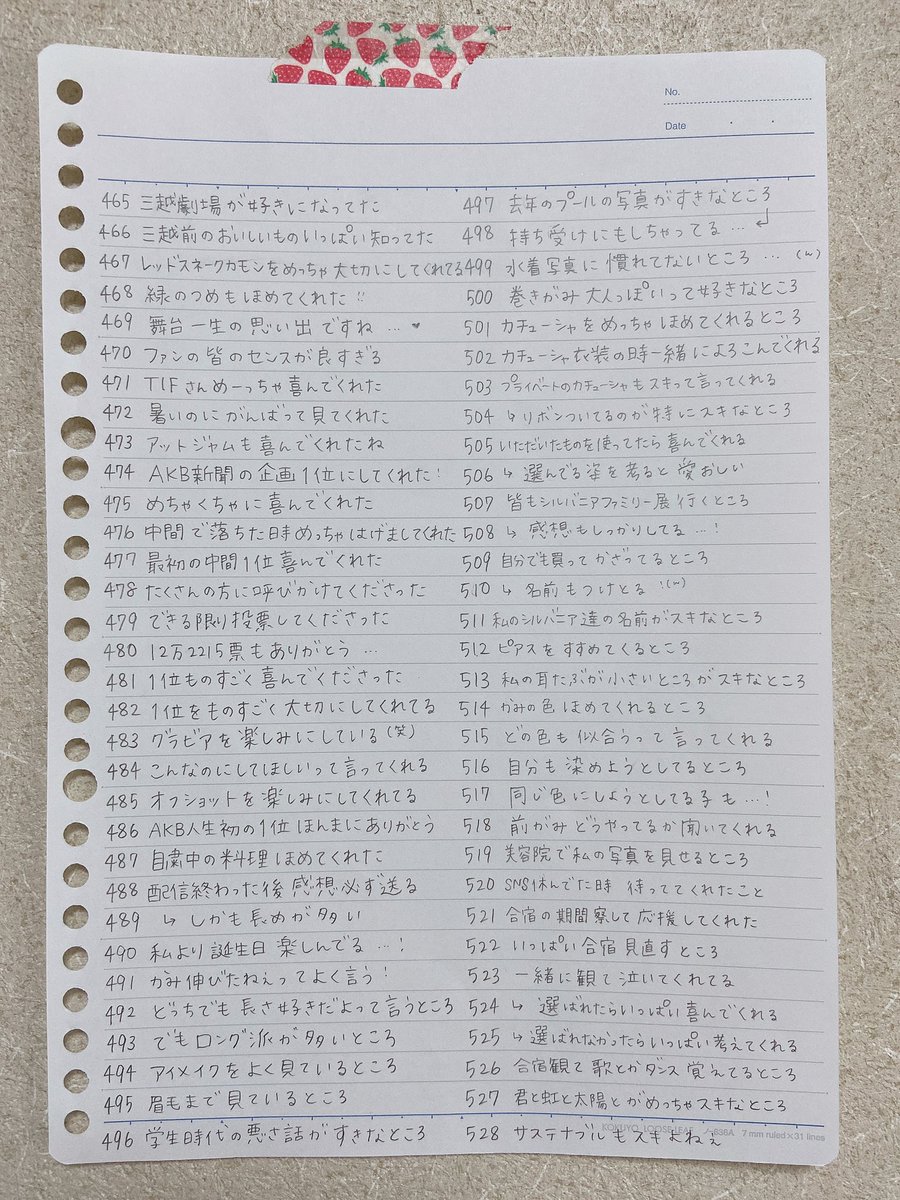 No.
Date
465 三越劇場が好きになってた
466 三越前のおいしいものいっぱい知ってた
467 レッドスネークカモンをめっちゃ大切にしてくれてる
468 緑のつめもほめてくれた!!
469 舞台一生の思い出ですね…♥
470 ファンの皆のセンスが良すぎる
471 TIFさんめーっちゃ喜んでくれた
472 暑いのにがんばって見てくれた
473 アットジャムも喜んでくれたね
474 AKB新聞の企画1位にしてくれた!
475 めちゃくちゃに喜んでくれた
476 中間で落ちた時めっちゃはげましてくれた
477 最初の中間1位喜んでくれた
478 たくさんの方に呼びかけてくださった
479 できる限り投票してくださった
480 12万2215票もありがとう…
481 1位ものすごく喜んでくださった
482 1位をものすごく大切にしてくれてる
483 グラビアを楽しみにしている(笑)
484 こんなのにしてほしいって言ってくれる
485 オフショットを楽しみにしてくれてる
486 AKB人生初の1位ほんまにありがとう
487 自粛中の料理ほめてくれた
488 配信終わった後感想必ず送る
489 ↳しかも長めが多い
490 私より誕生日楽しんでる…!
491 かみ伸びたねぇってよく言う!
492 どっちでも長さ好きだよって言うところ
493 でもロング派が多いところ
494 アイメイクをよく見ているところ
495 眉毛まで見ているところ
496 学生時代の悪さ話がすきなところ
497 去年のプールの写真がすきなところ
498 持ち受けにもしちゃってる…↲
499 水着写真に慣れてないところ…(w)
500 巻きがみ大人っぽいって好きなところ
501 カチューシャをめっちゃほめてくれるところ
502 カチューシャ衣装の時一緒によろこんでくれる
503 プライベートのカチューシャもスキって言ってくれる
504 ↳リボンついてるのが特にスキなところ
505 いただいたものを使ってたら喜んでくれる
506 ↳選んでる姿を考ると愛おしい
507 皆もシルバニアファミリー展行くところ
508 ↳感想もしっかりしてる…!
509 自分でも買ってかざってるところ
510 ↳名前もつけとる!(w)
511 私のシルバニア達の名前がスキなところ
512 ピアスをすすめてくるところ
513 私の耳たぶが小さいところがスキなところ
514 かみの色ほめてくれるところ
515 どの色も似合うって言ってくれる
516 自分も染めようとしてるところ
517 同じ色にしようとしてる子も…!
518 前がみどうやってるか聞いてくれる
519 美容院で私の写真を見せるところ
520 SNS休んでた時待っててくれたこと
521 合宿の期間察して応援してくれた
522 いっぱい合宿見直すところ
523 一緒に観て泣いてくれてる
524 ↳選ばれたらいっぱい喜んでくれる
525 ↳選ばれなかったらいっぱい考えてくれる
526 合宿観て歌とかダンス覚えてるところ
527 君と虹と太陽とがめっちゃスキなところ
528 サステナブルもスキよねぇ
KOKUYO LOOSE-LEAF ノ-836A 7 mm ruled×31 lines